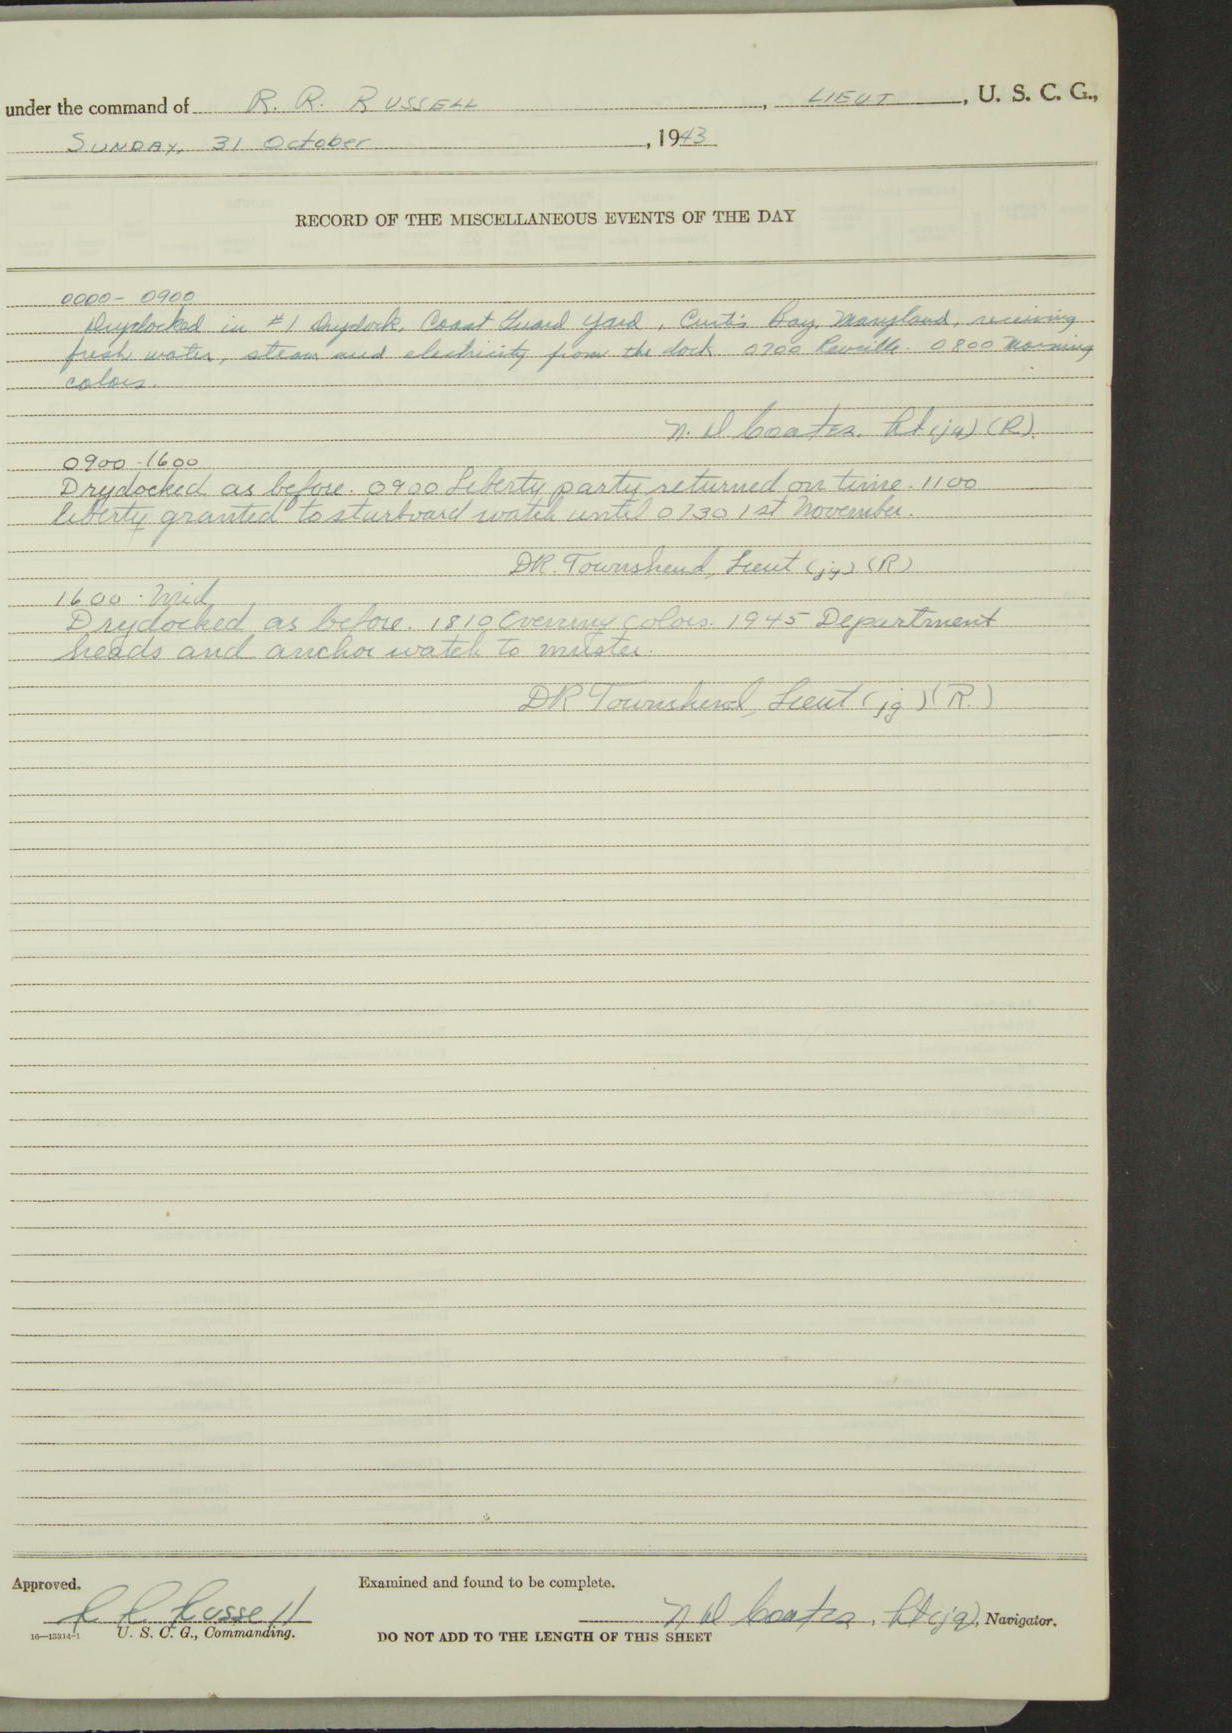 under the command of R. R. RUSSELL, LIEUT, U. S. C. G.,
SUNDAY, 31 October, 1943
RECORD OF THE MISCELLANEOUS EVENTS OF THE DAY
0000 - 0900
Drydocked in #1 Drydock, Coast Guard Yard, Curtis Bay, Maryland, receiving
fresh water, steam and electricity from the dock 0700 Reveille. 0800 Morning
colors.
N. W Coates, Lt (jg) (R).
0900 - 1600
Drydocked as before. 0900 Liberty party returned on time. 1100
liberty granted to starboard watch until 0730 1st November.
DR. Townshend, Lieut (jg) (R)
1600 - Mid
Drydocked as before. 1810 Evening colors. 1945 Department
heads and anchor watch to muster.
DR Townshend, Lieut (jg) (R.)
Approved.
Examined and found to be complete.
R R Russell
N W Coates, Lt (jg), Navigator.
16—13314-1
U. S. C. G., Commanding.
DO NOT ADD TO THE LENGTH OF THIS SHEET